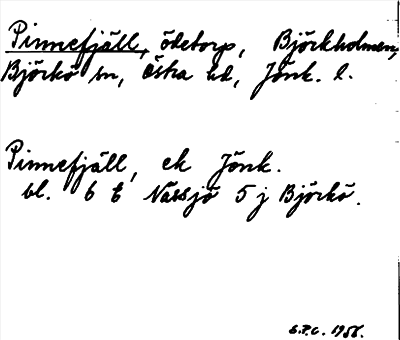 Pinnefjäll, ödetorp, Björkholmen,
Björkö sn, Östra hd, Jönk. l.
Pinnefjäll, ek Jönk.
bl. 6 t Nässjö 5 j Björkö.
S.P.C. 1956.